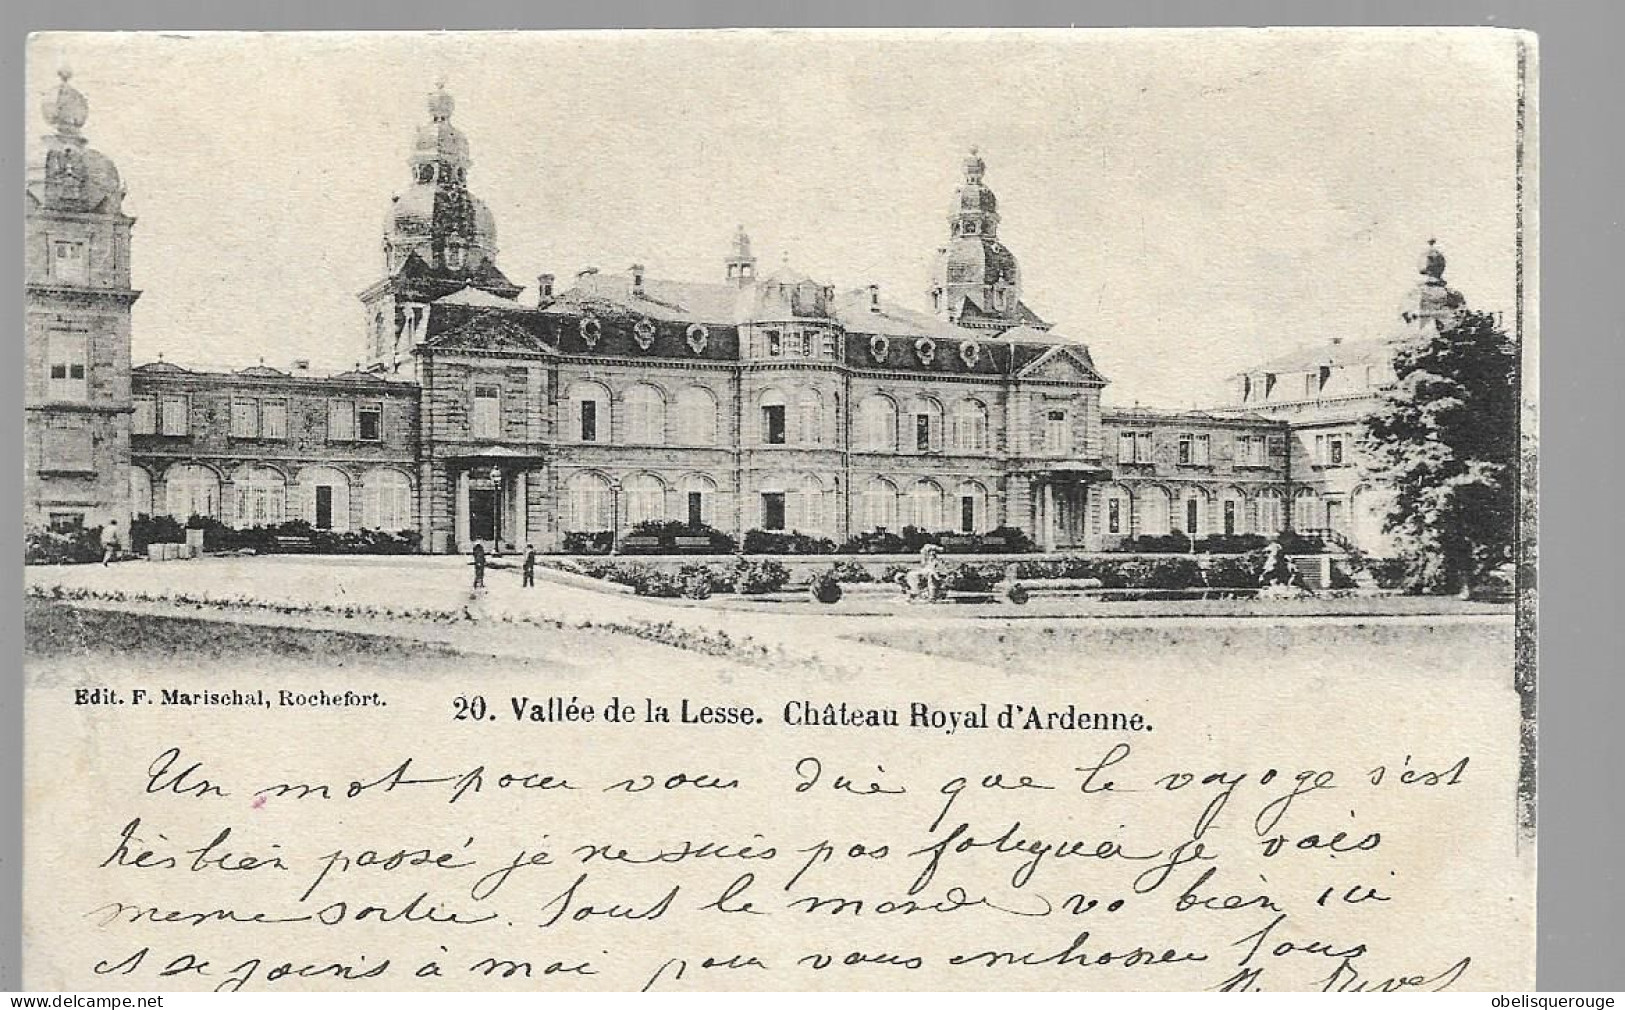 Edit. F. Marischal, Rochefort.
20. Vallée de la Lesse. Château Royal d'Ardenne.
Un mot pour vous dire que le voyage s'est
très bien passé je ne suis pas fatiguée je vais
meme sortir. Tout le monde va bien ici
et se joins à moi pour vous embrasser Tous
obelisquerouge